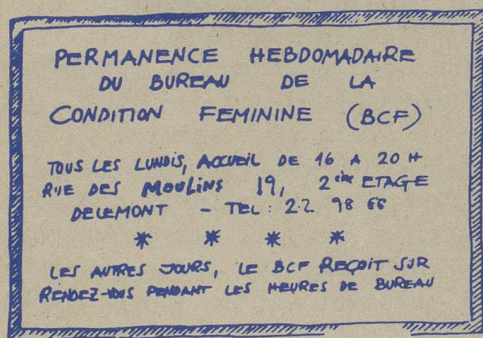 PERMANENCE HEBDOMADAIRE
DU BUREAU DE LA
CONDITION FEMININE (BCF)
TOUS LES LUNDIS, ACCUEIL DE 16 A 20 H
RUE DES MOULINS 19, 2ème ETAGE
DELEMONT - TEL: 22 98 66
* * * *
LES AUTRES JOURS, LE BCF REÇOIT SUR
RENDEZ-VOUS PENDANT LES HEURES DE BUREAU